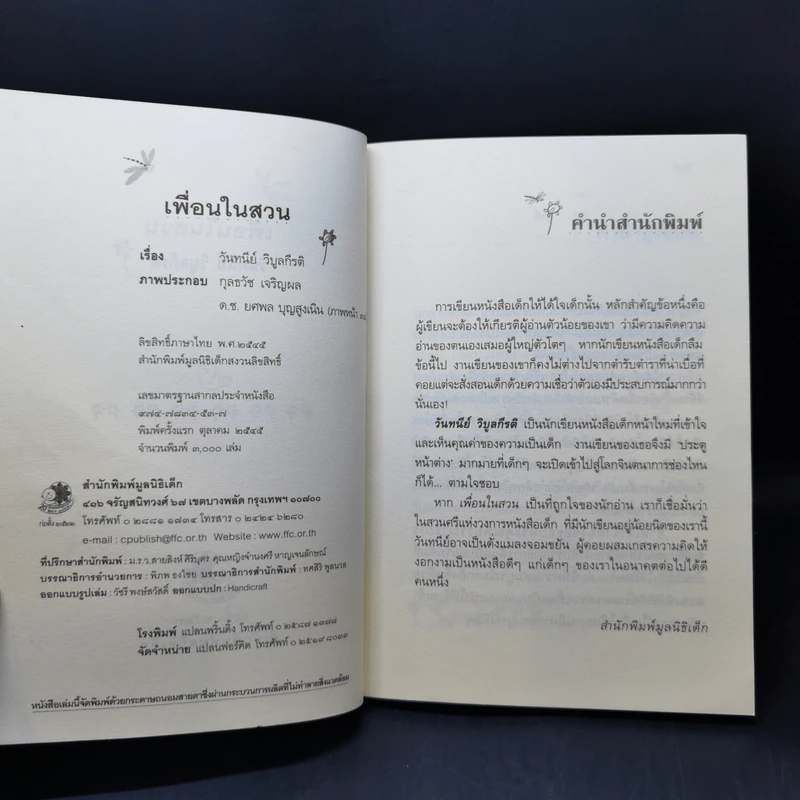 เพื่อนในสวน
เรื่อง วันทนีย์ วิบูลกีรติ
ภาพประกอบ กุลธวัช เจริญผล
ด.ช. ยศพล บุญสูงเนิน (ภาพหน้า
ลิขสิทธิ์ภาษาไทย พ.ศ.๒๕๔๕
สำนักพิมพ์มูลนิธิเด็กสงวนลิขสิทธิ์
เลขมาตรฐานสากลประจำหนังสือ
๙๗๔-๗๘๓๔-๕๓-๗
พิมพ์ครั้งแรก ตุลาคม ๒๕๔๕
จำนวนพิมพ์ ๓,๐๐๐ เล่ม
สำนักพิมพ์มูลนิธิเด็ก
๔๑๖ จรัญสนิทวงศ์ ๖๗ เขตบางพลัด กรุงเทพฯ ๑๐๗๐๐
โทรศัพท์ ๐ ๒๘๘๑ ๑๗๓๔ โทรสาร ๐ ๒๔๒๔ ๖๒๘๐
e-mail : cpublish@ffc.or.th Website : www.ffc.or.th
ก่อตั้ง ๒๕๒๒
ที่ปรึกษาสำนักพิมพ์ : ม.ร.ว.สายสิงห์ ศิริบุตร คุณหญิงจำนงศรี หาญเจนลักษณ์
บรรณาธิการอำนวยการ : พิภพ ธงไชย บรรณาธิการสำนักพิมพ์ : ทศสิริ พูลนวล
ออกแบบรูปเล่ม : วัชรี พงษ์สวัสดิ์ ออกแบบปก : Handicraft
โรงพิมพ์ แปลนพริ้นติ้ง โทรศัพท์ ๐ ๒๕๘๗ ๑๓๗๗
จัดจำหน่าย แปลนฟอร์คิด โทรศัพท์ ๐ ๒๕๑๙ ๘๐๓๑
หนังสือเล่มนี้จัดพิมพ์ด้วยกระดาษถนอมสายตาซึ่งผ่านกระบวนการผลิตที่ไม่ทำลายสิ่งแวดล้อม
คำนำสำนักพิมพ์
การเขียนหนังสือเด็กให้ได้ใจเด็กนั้น หลักสำคัญข้อหนึ่งคือ
ผู้เขียนจะต้องให้เกียรติผู้อ่านตัวน้อยของเขา ว่ามีความคิดความ
อ่านของตนเองเสมอผู้ใหญ่ตัวโตๆ หากนักเขียนหนังสือเด็กลืม
ข้อนี้ไป งานเขียนของเขาก็คงไม่ต่างไปจากตำรับตำราที่น่าเบื่อที่
คอยแต่จะสั่งสอนเด็กด้วยความเชื่อว่าตัวเองมีประสบการณ์มากกว่า
นั่นเอง!
วันทนีย์ วิบูลกีรติ เป็นนักเขียนหนังสือเด็กหน้าใหม่ที่เข้าใจ
และเห็นคุณค่าของความเป็นเด็ก งานเขียนของเธอจึงมี 'ประตู
หน้าต่าง' มากมายที่เด็กๆ จะเปิดเข้าไปสู่โลกจินตนาการช่องไหน
ก็ได้... ตามใจชอบ
หาก เพื่อนในสวน เป็นที่ถูกใจของนักอ่าน เราก็เชื่อมั่นว่า
ในสวนศรีแห่งวงการหนังสือเด็ก ที่มีนักเขียนอยู่น้อยนิดของเรานี้
วันทนีย์อาจเป็นดั่งแมลงจอมขยัน ผู้คอยผสมเกสรความคิดให้
งอกงามเป็นหนังสือดีๆ แก่เด็กๆ ของเราในอนาคตต่อไปได้ดี
คนหนึ่ง
สำนักพิมพ์มูลนิธิเด็ก